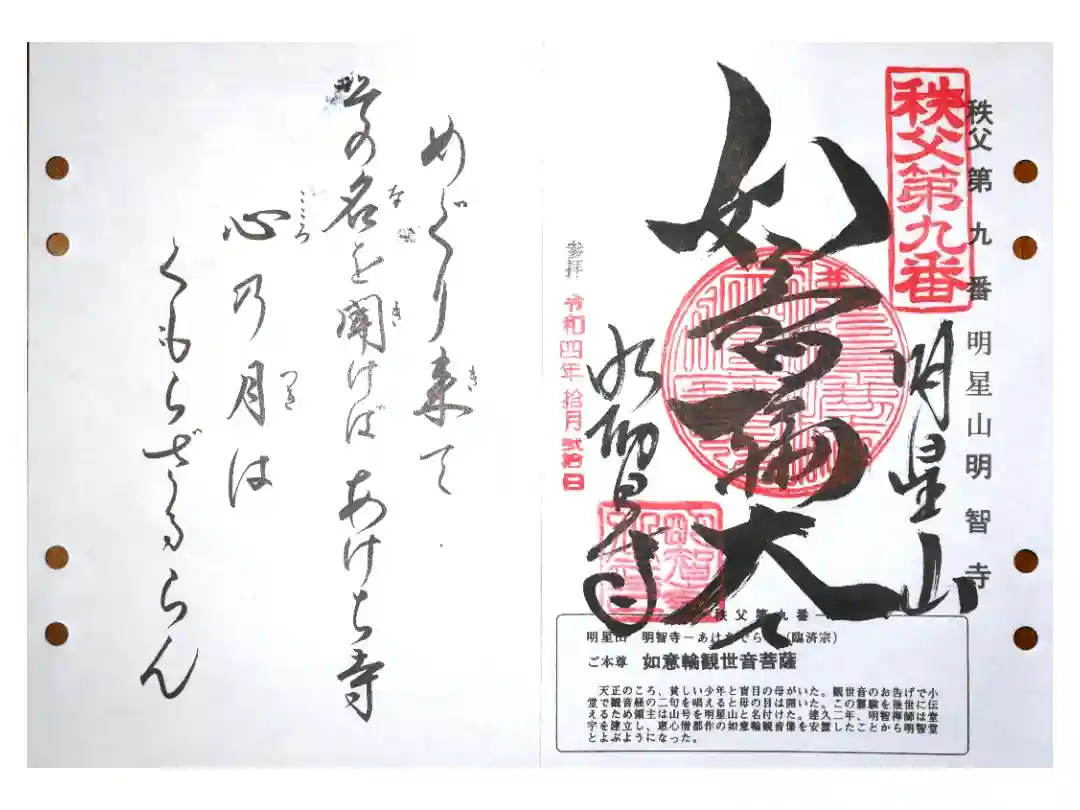 秩父第九番 明星山明智寺
秩父第九番
明星山
如意輪大
明智寺
明智寺
参拝 令和四年拾月弐拾日
秩父第九番
明星山 明智寺－あけちでら－(臨済宗)
ご本尊 如意輪観世音菩薩
天正のころ、貧しい少年と盲目の母がいた。観世音のお告げで小
堂で観音経の二句を唱えると母の目は開いた。この霊験を後世に伝
えるため領主は山号を明星山と名付けた。建久二年、明智禅師は堂
宇を建立し、恵心僧都作の如意輪観音像を安置したことから明智堂
とよぶようになった。
めぐり来て
き
その名を聞けば あけち寺
な き
心乃月は
こころ つき
くもらざるらん